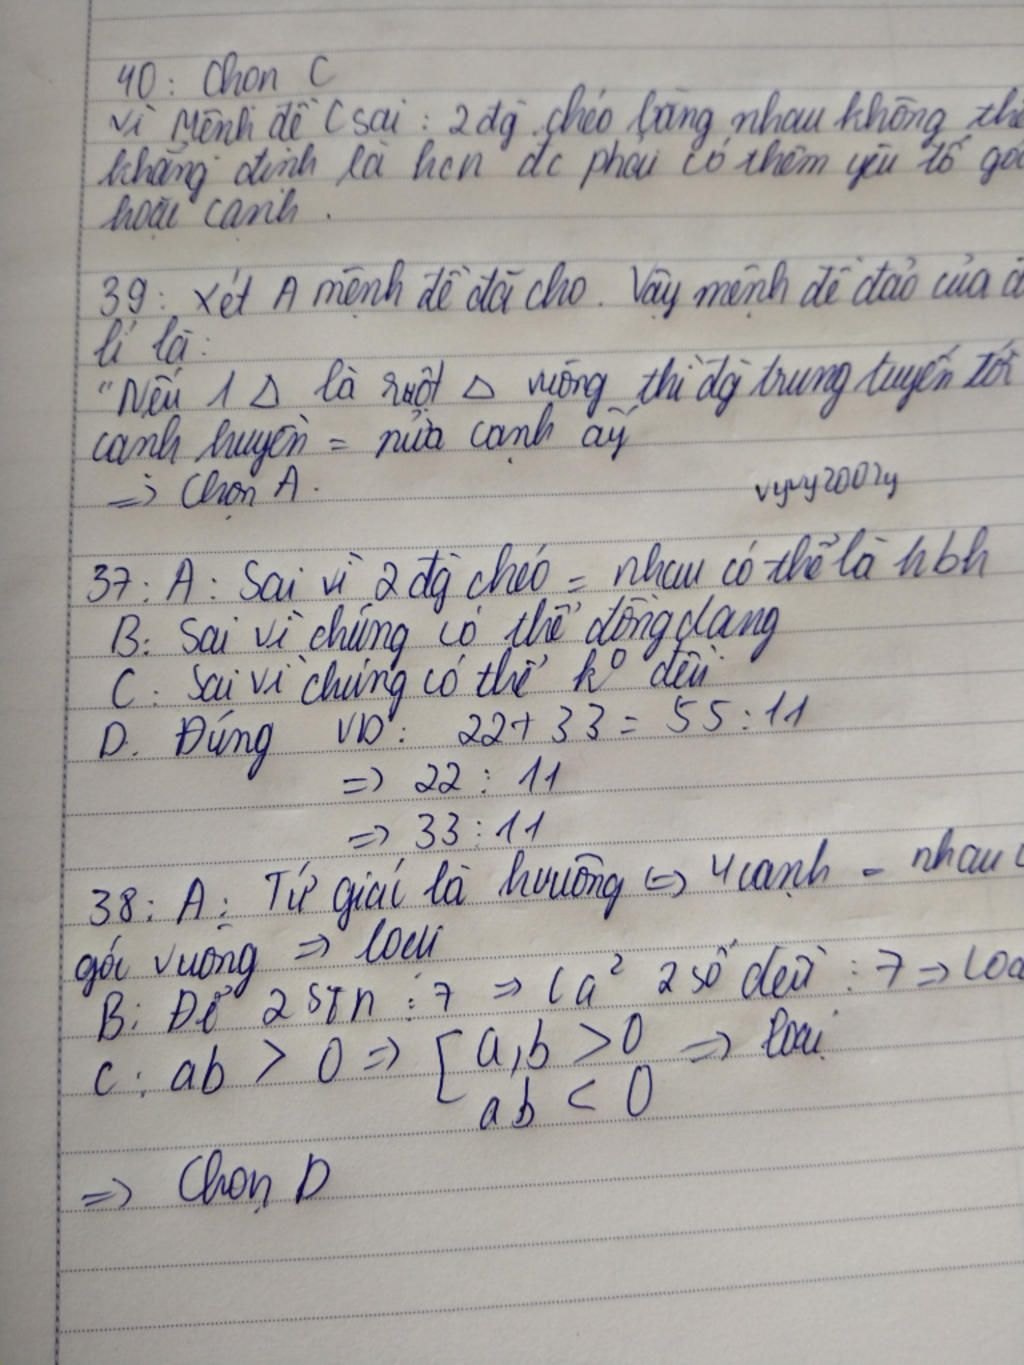 40: Chọn C
vì Mệnh đề C sai: 2 đg chéo bằng nhau không thể
khẳng định là hcn đc phải có thêm yếu tố góc
hoặc cạnh.
39: Xét A mệnh đề đã cho. Vậy mệnh đề đảo của
lí là:
"Nếu 1 Δ là một Δ vuông thì đg trung tuyến tới
cạnh huyền = nửa cạnh ấy
=> Chọn A.
vyvy2002y
37: A: Sai vì 2 đg chéo = nhau có thể là hbh
B: Sai vì chúng có thể đồng dạng
C: Sai vì chúng có thể k° đều
D. Đúng VD: 22+33=55:11
=> 22:11
=> 33:11
38: A: Tứ giác là hvuông <=> 4 cạnh = nhau
góc vuông => loại
B: Để 2 STN : 7 => Cả 2 số đều : 7 => Loại
C: ab > 0 => [a,b > 0 => loại
ab < 0
=> Chọn D